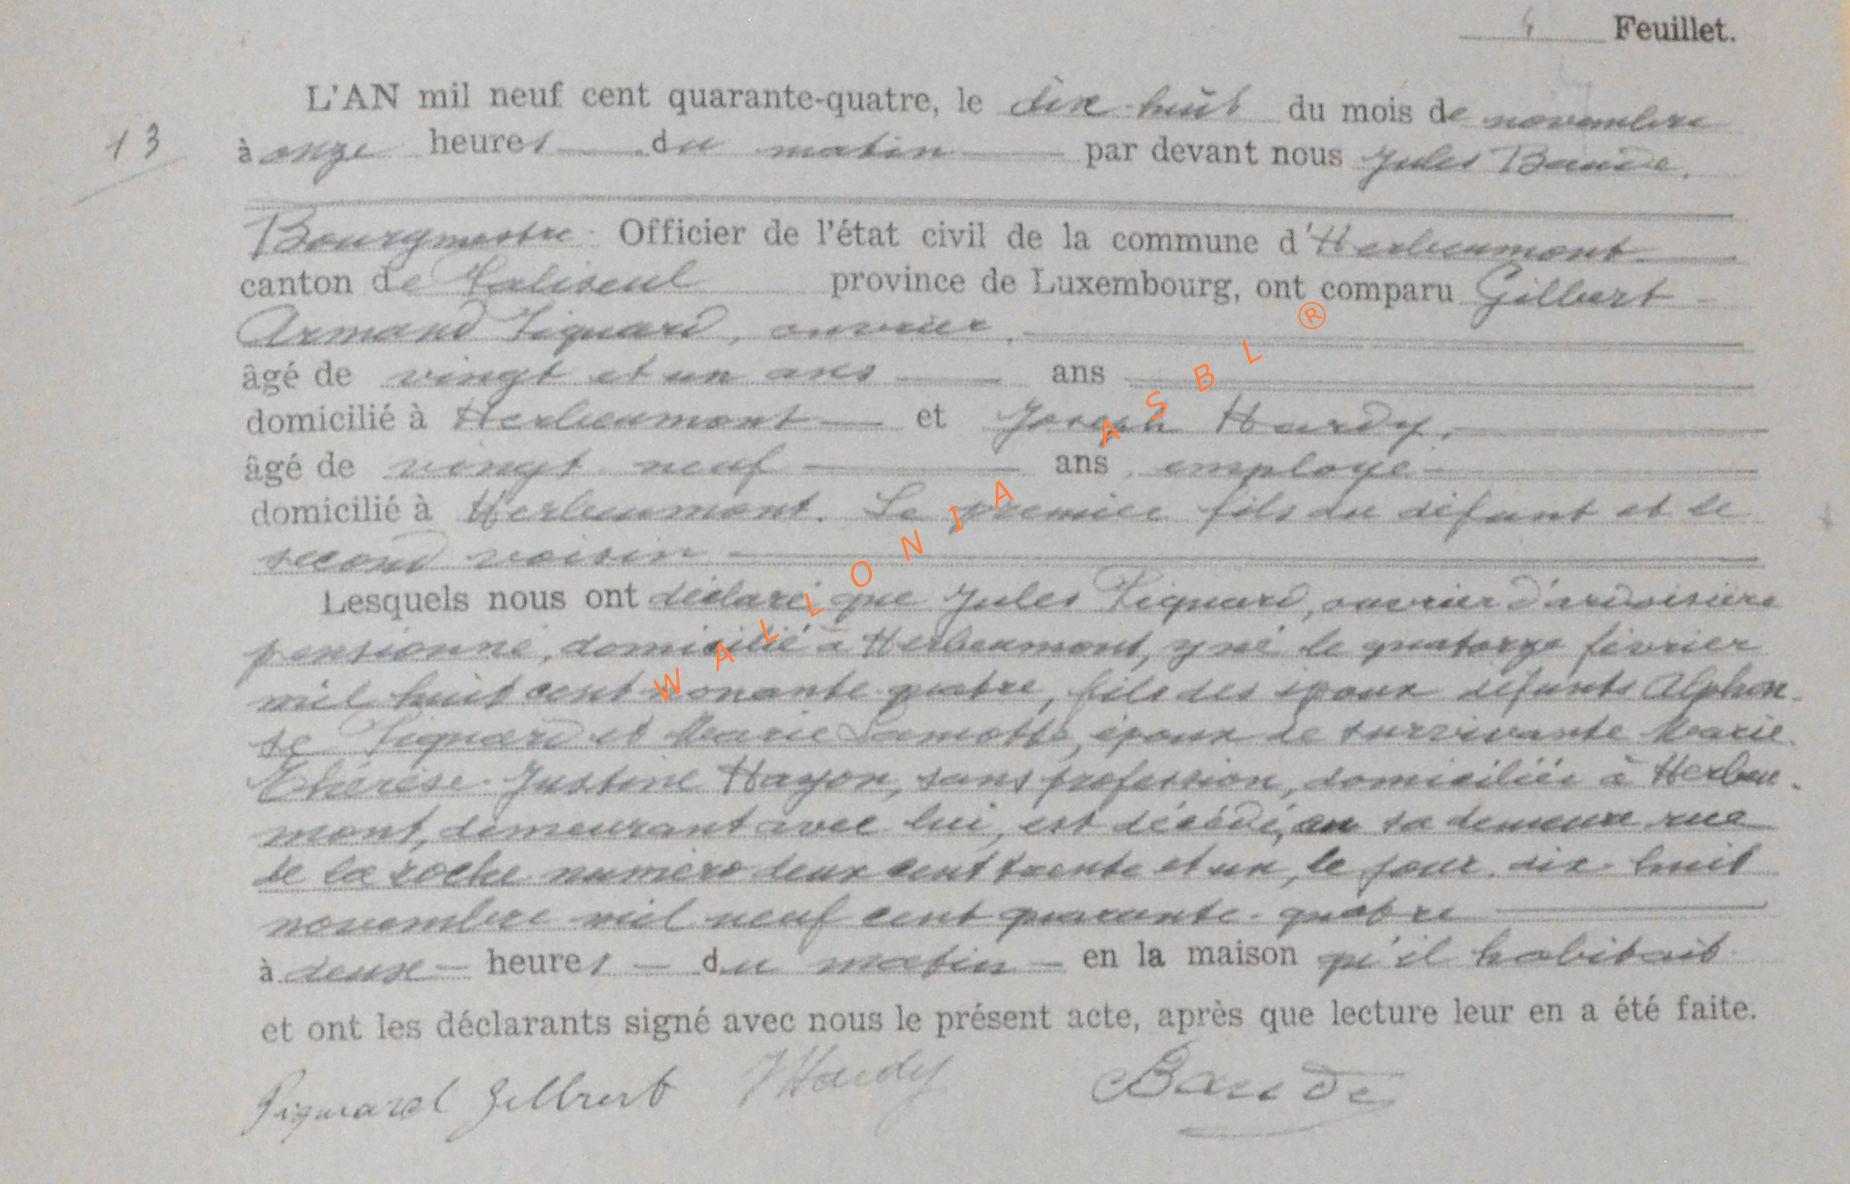 4 Feuillet.
L'AN mil neuf cent quarante-quatre, le dix-huit du mois de novembre
13
à onze heures du matin par devant nous Jules Baudé,
Bourgmestre Officier de l'état civil de la commune d'Herbeumont
canton de Paliseul province de Luxembourg, ont comparu Gilbert
Armand Piquard, ouvrier,
âgé de vingt et un ans ans
domicilié à Herbeumont et Joseph Hardy,
âgé de vingt neuf ans, employé
domicilié à Herbeumont. Le premier fils du défunt et le
second voisin
Lesquels nous ont déclaré que Jules Piquard, ouvrier d'ardoisière
pensionné, domicilié à Herbeumont, y né le quatorze février
mil huit cent nonante-quatre, fils des époux défunts Alphon-
se Piquard et Marie Lamotte, époux de survivante Marie
Thérèse-Justine Hayon, sans profession, domiciliée à Herbeu-
mont, demeurant avec lui, est décédé, en sa demeure rue
de la roche numéro deux cent trente et un, le jour dix-huit
novembre mil neuf cent quarante-quatre
à deux heures du matin en la maison qu'il habitait
et ont les déclarants signé avec nous le présent acte, après que lecture leur en a été faite.
Piquard Gilbert JHardy Baudé
WALLONIA ASBL ®